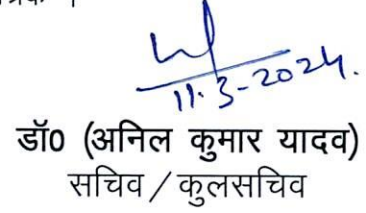 11.3-2024.
डॉ0 (अनिल कुमार यादव)
सचिव / कुलसचिव